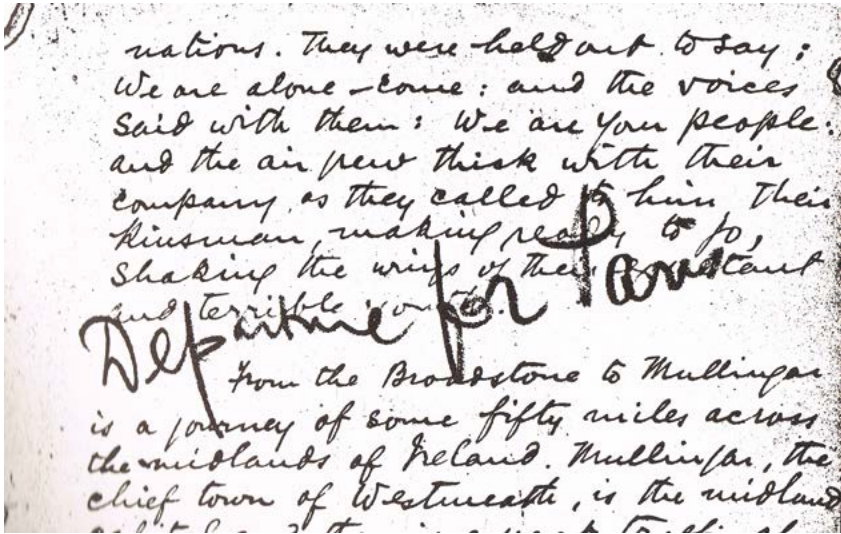 nations. They were held out to say:
We are alone – come: and the voices
said with them: We are your people.
and the air grew thick with their
company as they called to him their
kinsman, making ready to go,
shaking the wings of their exultant
and terrible youth.
Departure for Paris
From the Broadstone to Mullingar
is a journey of some fifty miles across
the midlands of Ireland. Mullingar, the
chief town of Westmeath, is the midland